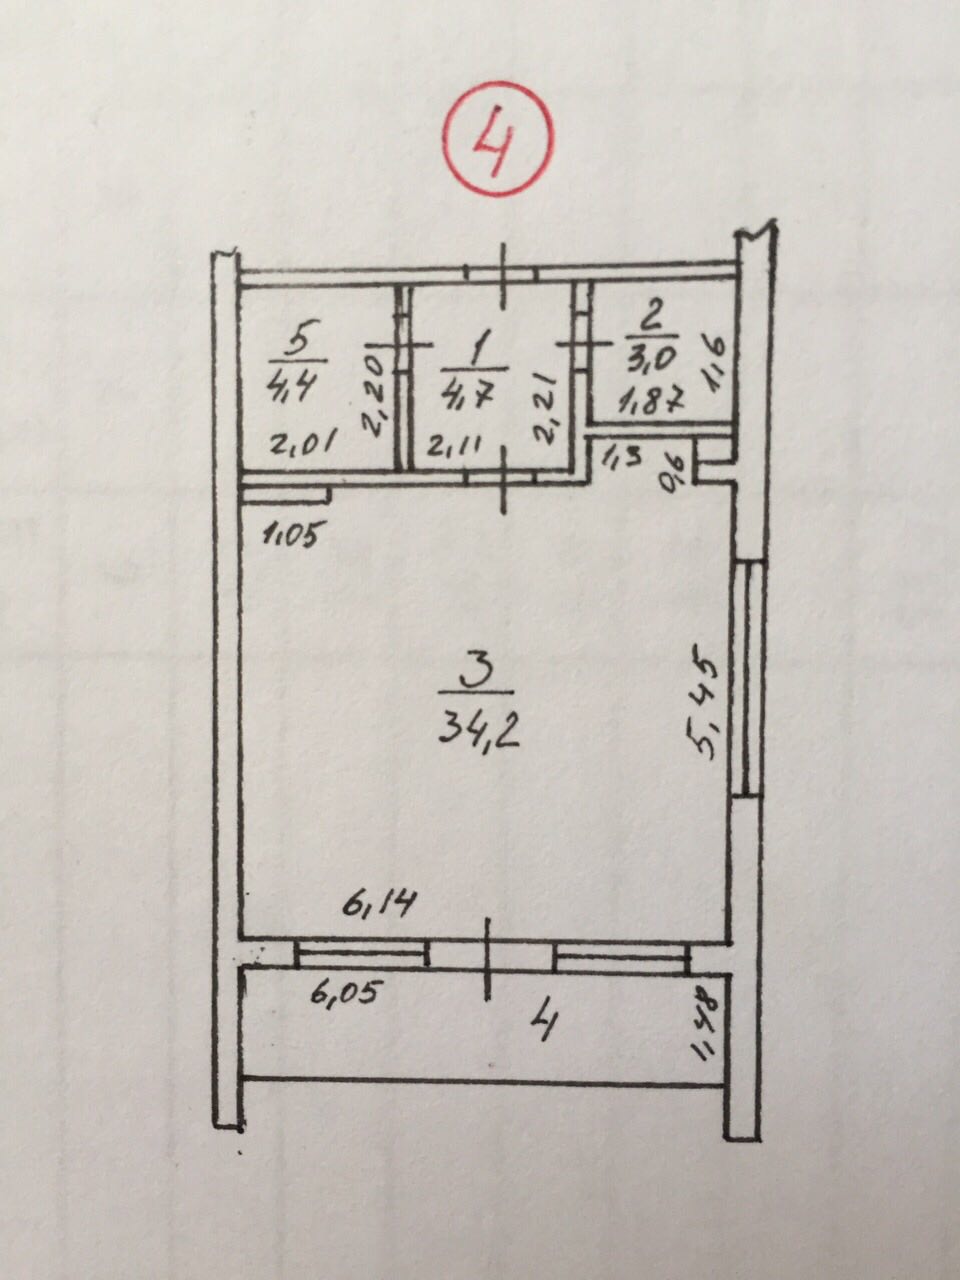 4
5
4,4
2,20
2,01
1
4,7
2,21
2,11
2
3,0
1,6
1,87
1,3
0,6
1,05
3
34,2
5,45
6,14
6,05
4
1,48